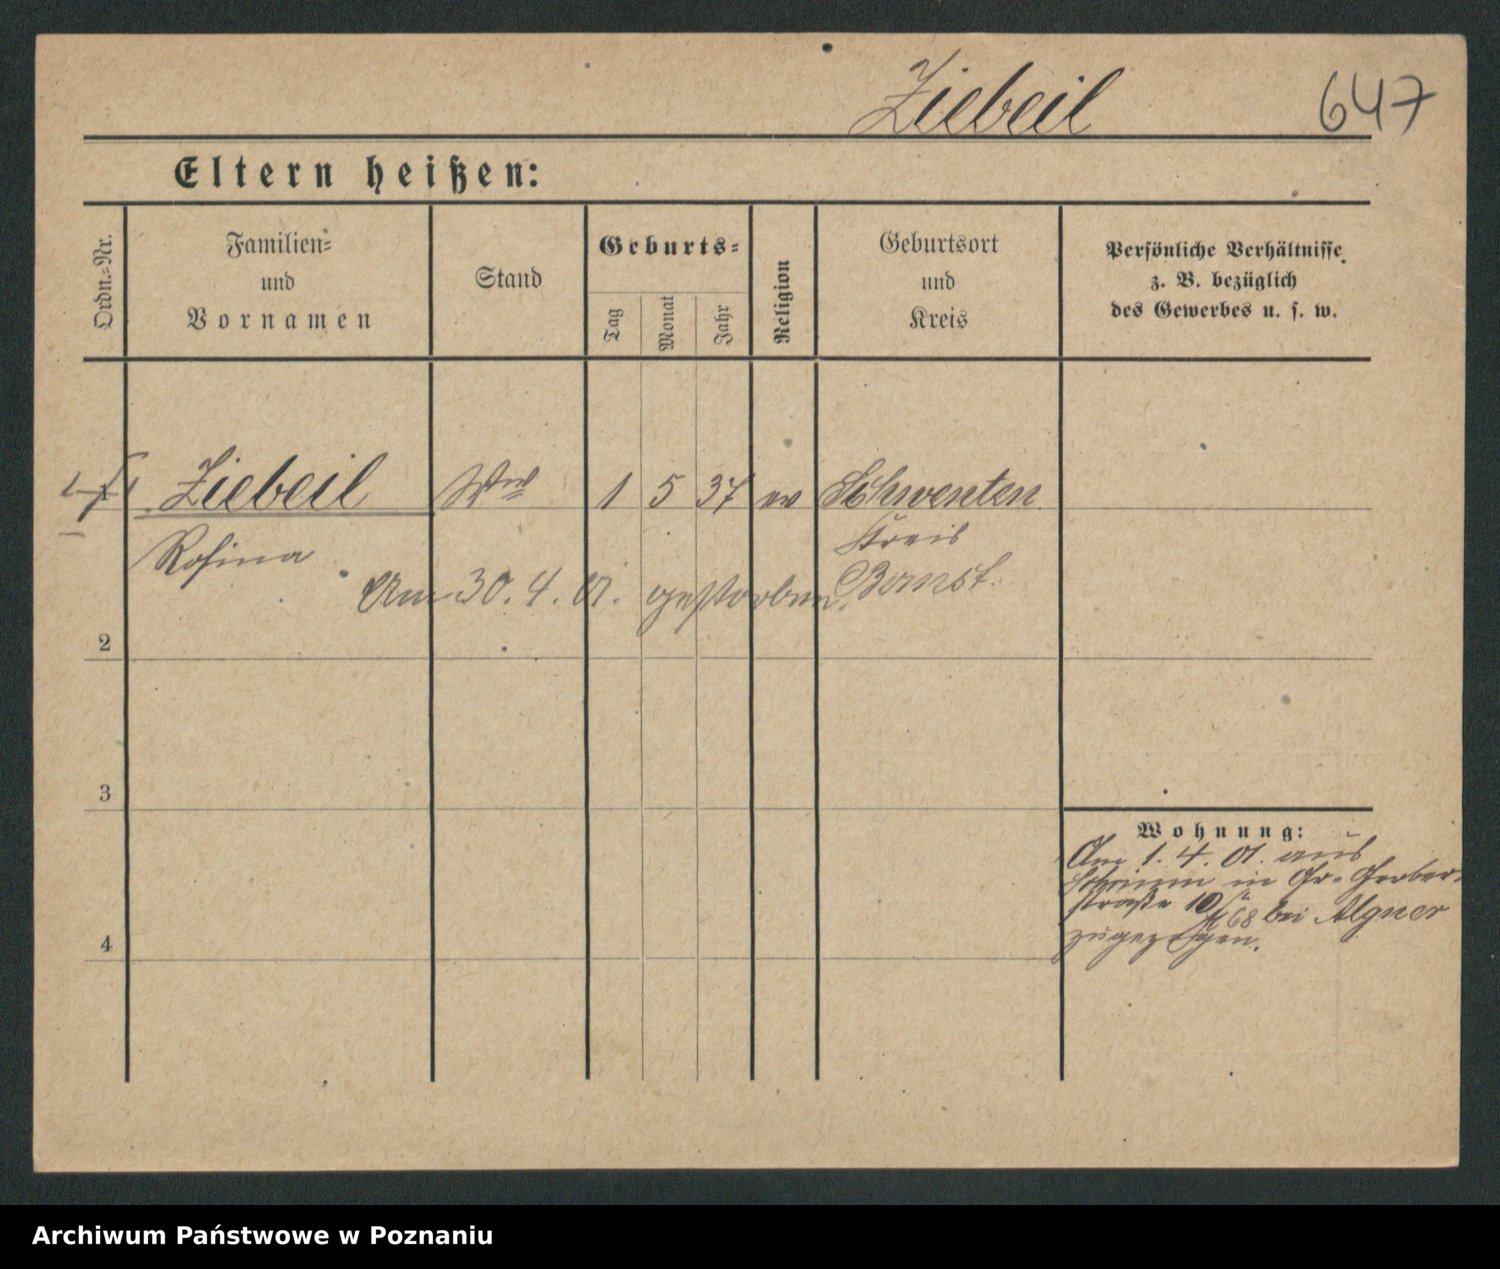 Ziebeil 647
Eltern heißen:
Ordn.=Nr.
Familien=
und
Vornamen
Stand
Geburts=
Tag
Monat
Jahr
Religion
Geburtsort
und
Kreis
Persönliche Verhältnisse
z. B. bezüglich
des Gewerbes u. s. w.
1 Ziebeil Wwe 1 5 37 ev Schwenten
Rosina Kreis
Am 30. 4. 01. gestorben. Bomst.
2
3
Wohnung:
Am 1. 4. 01. aus
in Gr. Gerber=
straße 10 bei Algner
4
zugezogen.
Archiwum Państwowe w Poznaniu